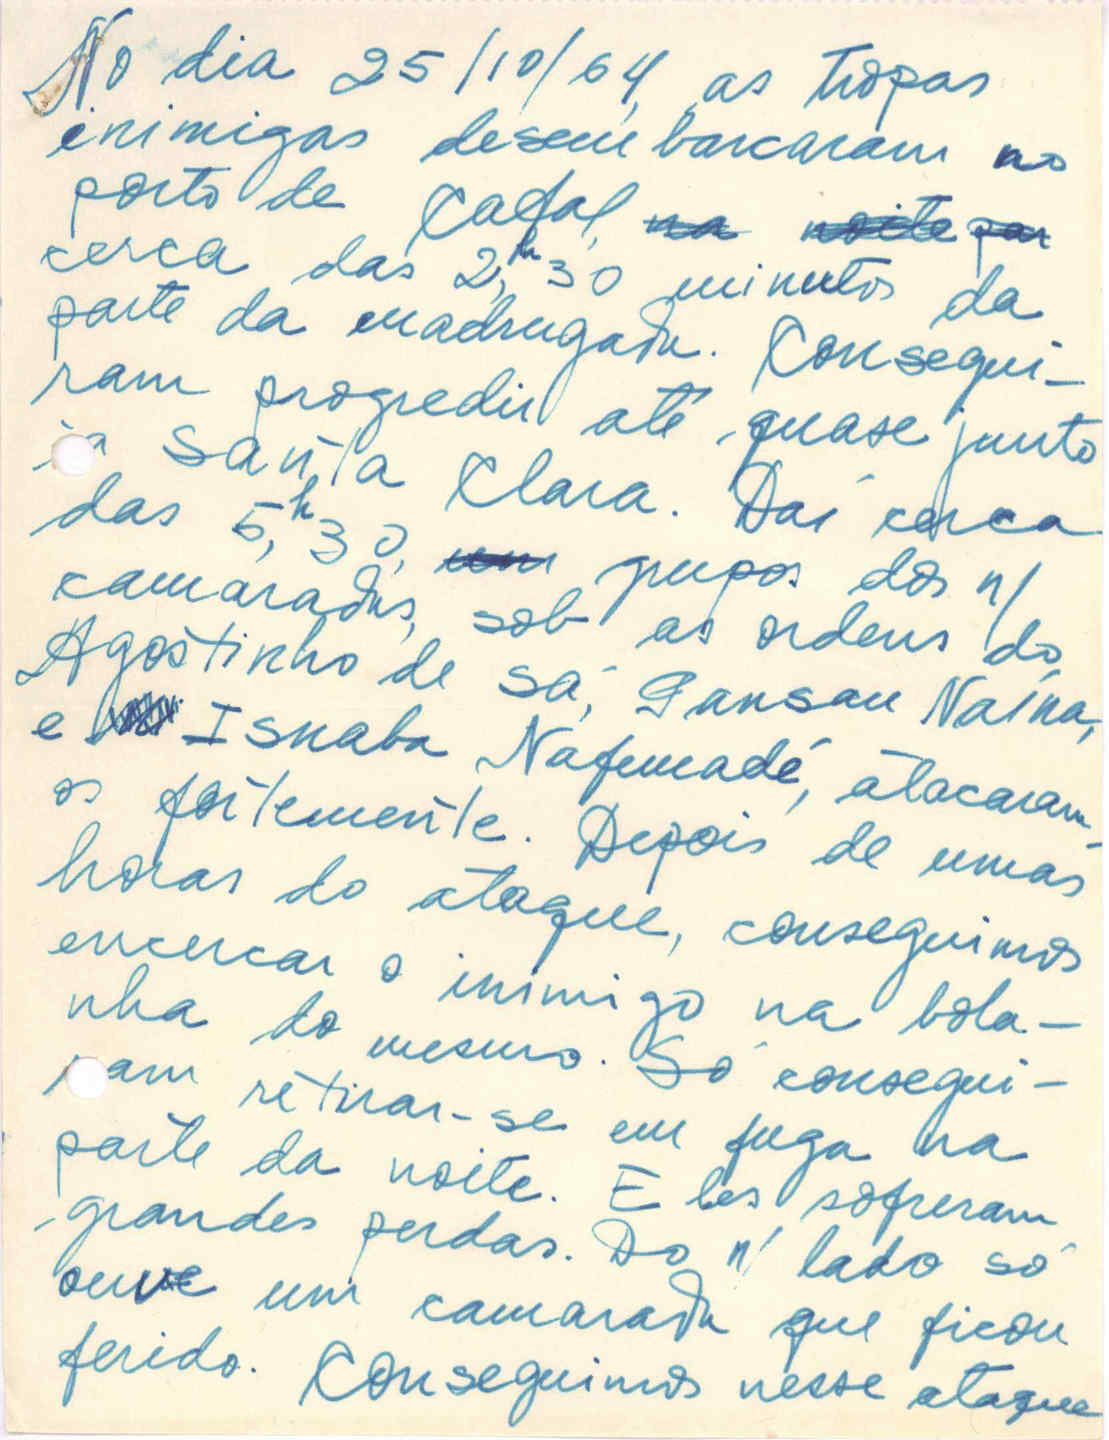 No dia 25/10/64, as tropas
inimigas desembarcaram no
porto de Cafal, na noite par
cerca das 2,h30 minutos da
parte da madrugada. Consegui-
ram progredir até quase junto
a Santa Clara. Daí cerca
das 5,h30, um grupos dos n/
camaradas, sob as ordens do
Agostinho de Sá, Gansau Naína,
e Isnaba Nafumadé, atacaram-
os fortemente. Depois de umas
horas do ataque, conseguimos
encercar o inimigo na bola-
nha do mesmo. Só consegui-
ram retirar-se em fuga na
parte da noite. Eles sofreram
grandes perdas. Do n/ lado só
ouve um camarada que ficou
ferido. Conseguimos nesse ataque